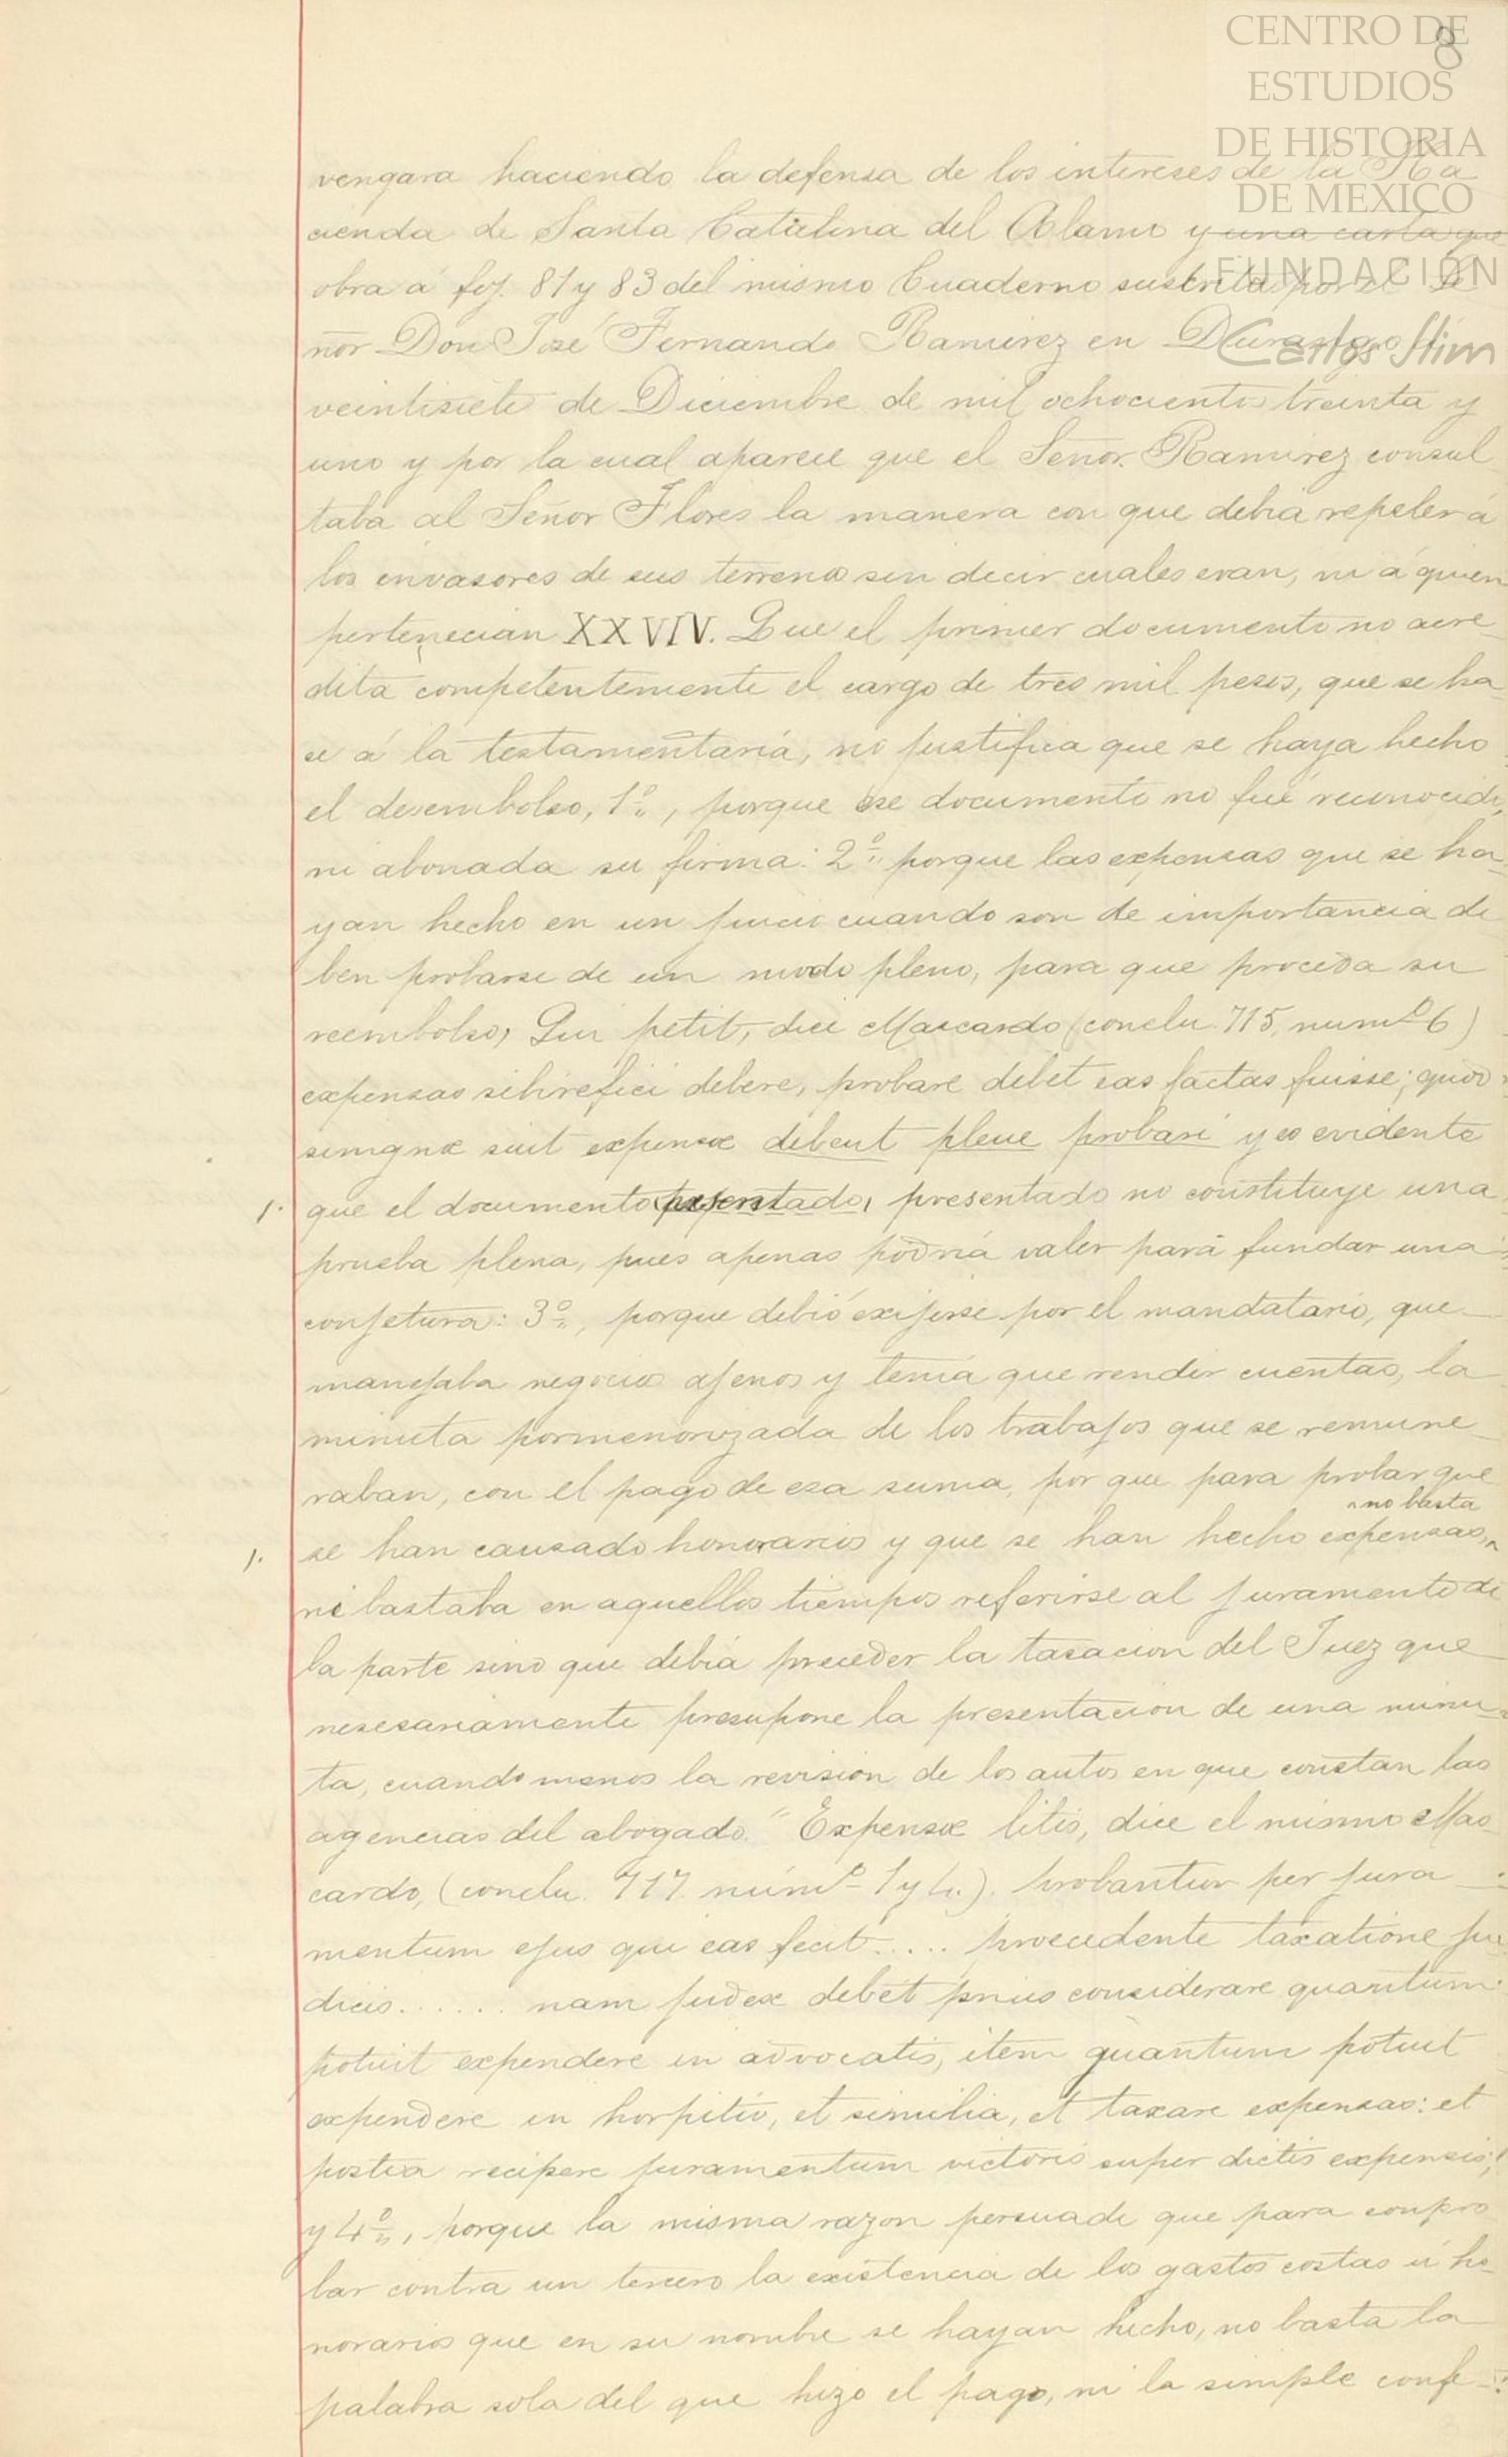 CENTRO DE
ESTUDIOS
DE HISTORIA
DE MEXICO
FUNDACIÓN
Carlos Slim
8
vengara haciendo la defensa de los intereses de la Ha
cienda de Santa Catalina del Alamo y una carta que
obra á foj. 81 y 83 del mismo Cuaderno suscrita por el Se
ñor Don José Fernando Ramirez en Durango á
veintisiete de Diciembre de mil ochocientos treinta y
uno y por la cual aparece que el Señor Ramirez consul
taba al Señor Flores la manera con que debia repeler á
los invasores de sus terrenos sin decir cuales eran, ni á quien
pertenecian XXVIV. Que el primer documento no acre
dita competentemente el cargo de tres mil pesos, que se ha
ce á la testamentaría, no justifica que se haya hecho
el desembolso, 1º, porque ese documento no fué reconocido,
ni abonada su firma: 2º porque las expensas que se ha
yan hecho en un juicio cuando son de importancia de
ben probarse de un modo pleno, para que proceda su
reembolso, Qui petit, dice Mascardo (conclu. 715, numº 6)
expensas sibi refici debere, probare debet eas factas fuisse; quod
simignæ sint expensæ debent plene probari y es evidente
1. que el documento presentado, presentado no constituye una
prueba plena, pues apenas podria valer para fundar una
conjetura: 3º, porque debió exijirse por el mandatario, que
manejaba negocios ajenos y tenía que rendir cuentas, la
minuta pormenorizada de los trabajos que se remune
raban, con el pago de esa suma, por que para probar que
no basta
1. se han causado honorarios y que se han hecho expensas,
ni bastaba en aquellos tiempos referirse al juramento de
la parte sino que debia preceder la tasacion del Juez que
nesesariamente presupone la presentacion de una minu
ta, cuando menos la revision de los autos en que constan las
agencias del abogado. "Expensæ litis, dice el mismo Mas
cardo, (conclu. 717. númº 1 y 4.). probantur per jura
mentum ejus qui eas fecit..... procedente taxatione ju
dicis...... nam judex debet prius considerare quantum
potuit expendere in advocatis, item quantum potuit
expendere in hospitio, et similia, et taxare expensas: et
postea recipere juramentum victoris super dictis expensis;"
y 4º, porque la misma razon persuade que para conpro
bar contra un tercero la existencia de los gastos costas ú ho
norarios que en su nombre se hayan hecho, no basta la
palabra sola del que hizo el pago, ni la simple confe